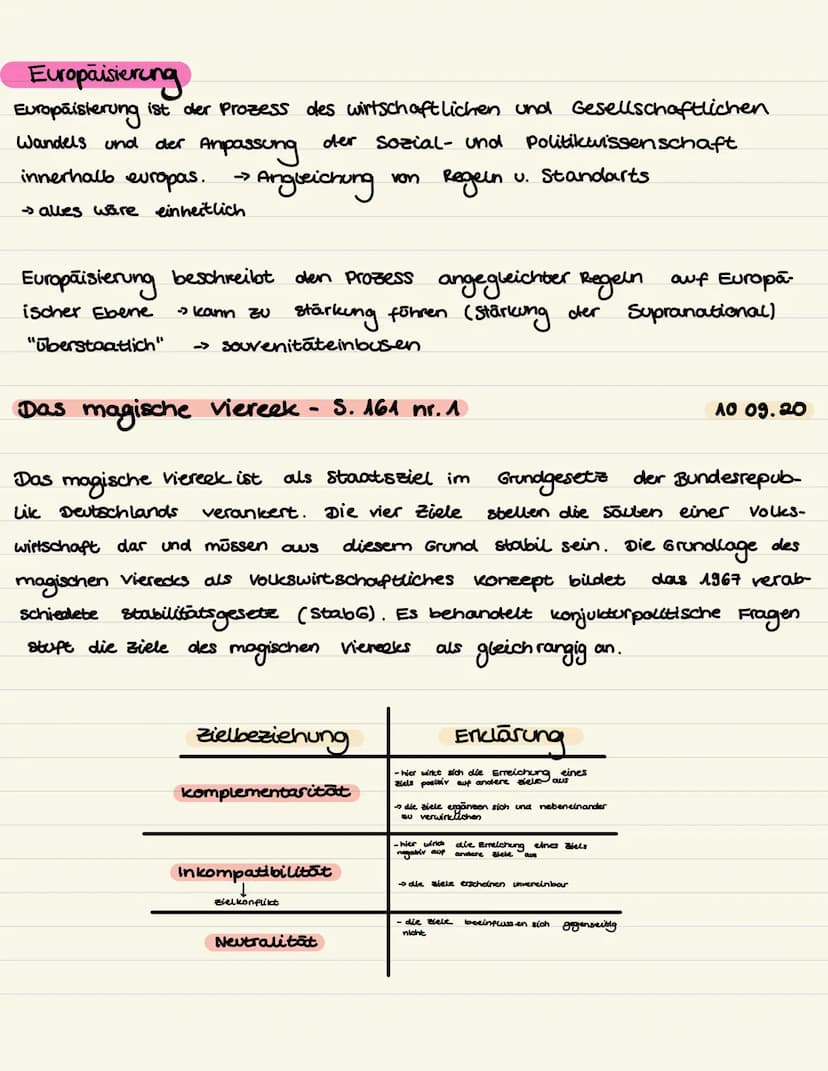 Europäisierung
Europäisierung ist der Prozess des wirtschaftlichen und Gesellschaftlichen
Wandels und der Anpassung der Sozial- und Politikwissenschaft
innerhalb europas. → Angleichung von Regeln u. Standarts
→ alles wäre einheitlich
Europäisierung beschreibt den Prozess angegleichter Regeln auf Europä-
ischer Ebene → kann zu stärkung führen (Stärkung der Supranational)
"überstaatlich" → souvenitäteinbusen
Das magische Viereek - S. 161 nr. 1 10 09.20
Das magische Viereek ist als Staatsziel im Grundgesetz der Bundesrepub-
lik Deutschlands verankert. Die vier Ziele stellen die Säulen einer Volks-
wirtschaft dar und müssen aus diesem Grund stabil sein. Die Grundlage des
magischen Vierecks als Volkswirtschaftliches Konzept bildet das 1967 verab-
schiedete Stabilitätsgesetz (StabG). Es behandelt konjukturpolitische Fragen
stuft die Ziele des magischen Viereeks als gleichrangig an.
Zielbeziehung Erklärung
Komplementarität
- hier wirkt sich die Erreichung eines
Ziels positiv auf andere Ziele aus
→ die Ziele ergänzen sich und nebeneinander
zu verwirklichen
Inkompatibilität
↓
Zielkonflikt
- hier wirkt die Erreichung eines Ziels
negativ auf andere Ziele aus
→ die Ziele erscheinen unvereinbar
Neutralität
- die Ziele beeinflussen sich gegenseitig
nicht